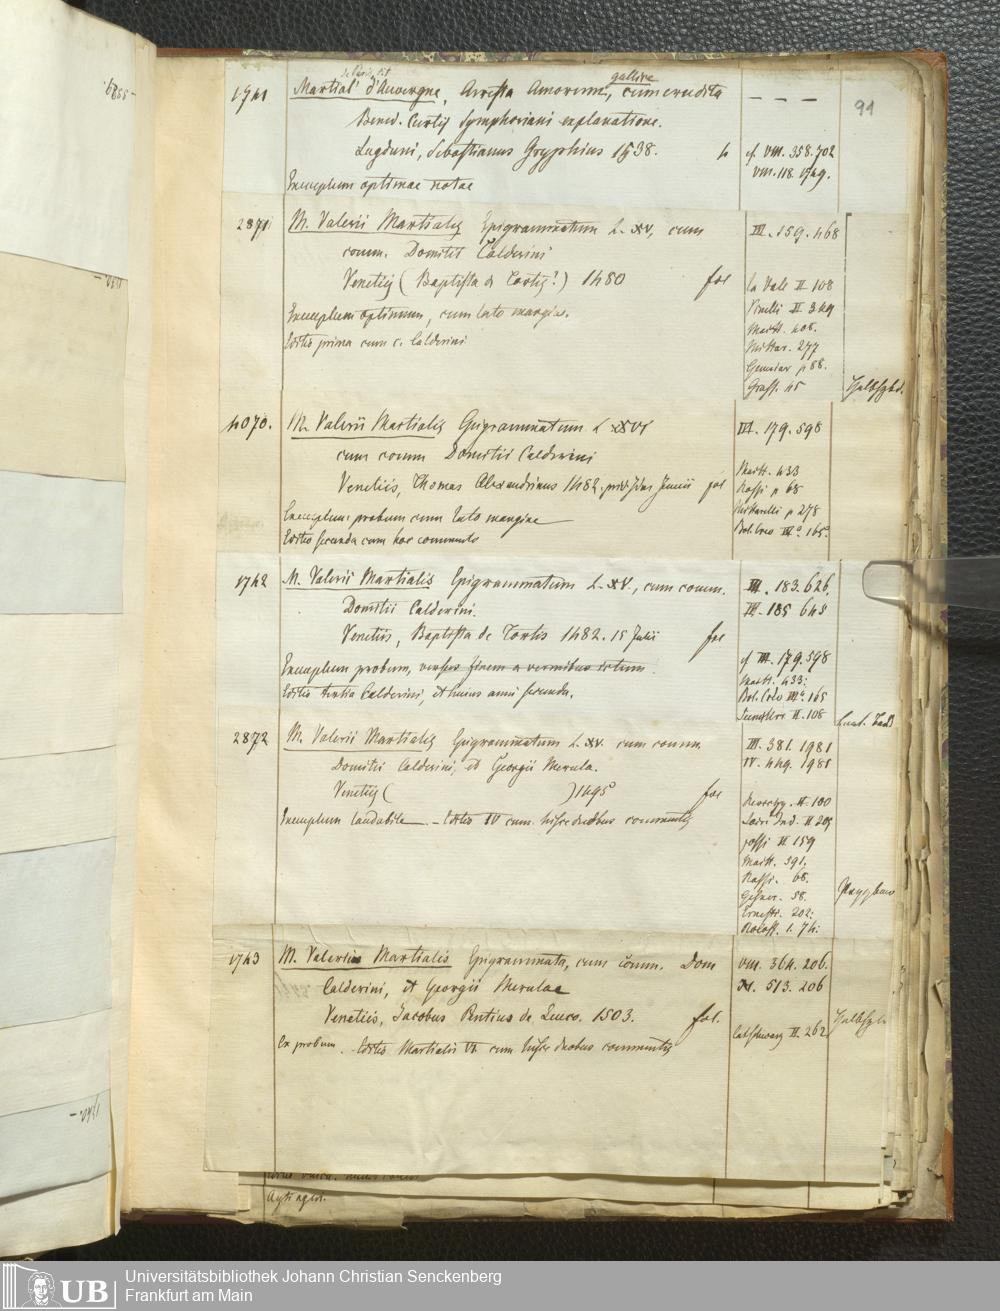 91
de Paris, dit
1741 Martial d'Auvergne, Arresta Amorum, gallice, cum erudita — — —
Bened. Curtij Symphoriani explanatione.
Lugduni, Sebastianus Gryphius 1538. cf. VIII. 358. 702
VIII. 118. 1749.
Exemplum optimae notae
2871 M. Valerii Martialis Epigrammatum L. XV, cum III. 159. 468
comm. Domitii Calderini
Venetiis (Baptista de Tortis?) 1480 fol la Vall II 108
Pinelli II 349
Exemplum optimum, cum lato margine. Maitt. 408.
Editio prima cum c. Calderini Mittar. 277
p 88.
45 Halbfzbd.
4070. M. Valerii Martialis Epigrammatum L XV III. 179. 598
cum comm Domitii Calderini
Maitt. 433
Venetiis, Thomas Alexandrinus 1482. prid. Idus Junii fol Rossi p 68
Exemplum probum cum lato margine Mittarelli p 278
Editio secunda cum hoc commento IIIa. 165.
1742 M. Valerii Martialis Epigrammatum L. XV, cum comm. III. 183. 626.
Domitii Calderini. III. 185 648
Venetiis, Baptista de Tortis 1482. 15 Julii fol
cf III. 179. 598
Exemplum probum, versus finem a vermibus ictum. Maitt. 433:
Editio tertia Calderini, et huius anni secunda. IIIa. 165
II. 108
2872 M. Valerii Martialis Epigrammatum L. XV. cum comm. III. 381. 1981
Domitii Calderini, et Georgii Merula. IV. 449. 1981
Venetiis ( ) 1495 fol
II. 100
Exemplum laudabile. — Editio IV cum hisce duobus commentis II 205
II 159
Maitt. 391.
Rossi. 68. Pappband
Gesner. 58.
Ernesti. 202:
Roloff. 1. 74.
1743 M. Valerius Martialis Epigrammata, cum comm. Dom VIII. 364. 206.
Calderini, et Georgii Merulae XI. 513. 206
Venetiis, Jacobus Pentius de Leuco. 1503. fol. Halbfzb.
Ex probum. — Editio Martialis VI. cum hisce duobus commentis II. 262
Universitätsbibliothek Johann Christian Senckenberg
Frankfurt am Main
UB